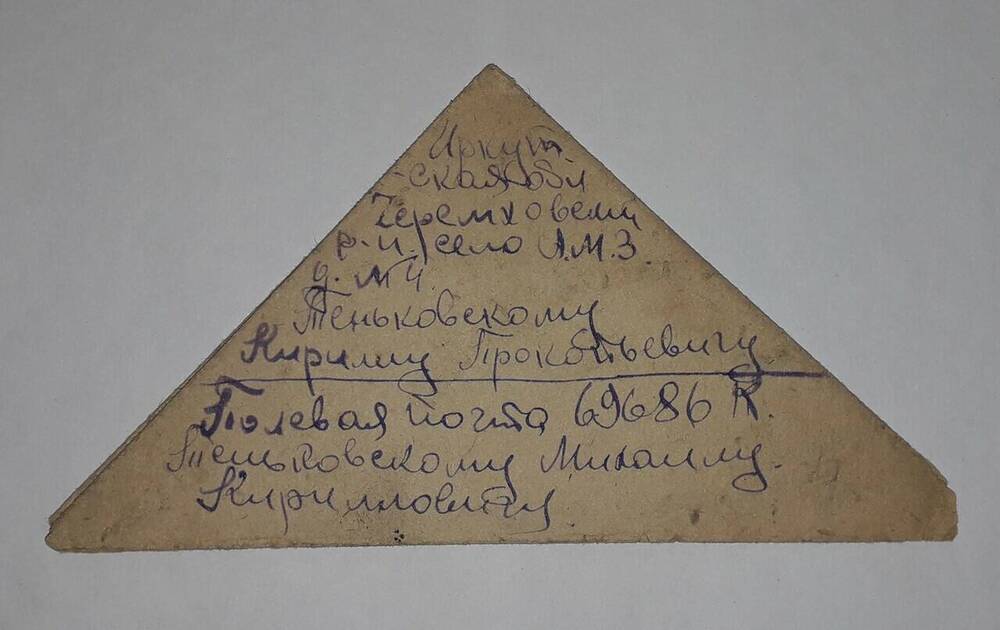 Иркут
ская обл
Черемховский
р-н. село А.М.З.
д. № 4.
Теньковскому
Кириллу Прокопьевичу
Полевая почта 69686 К.
Теньковскому Михаилу.
Кирилловичу